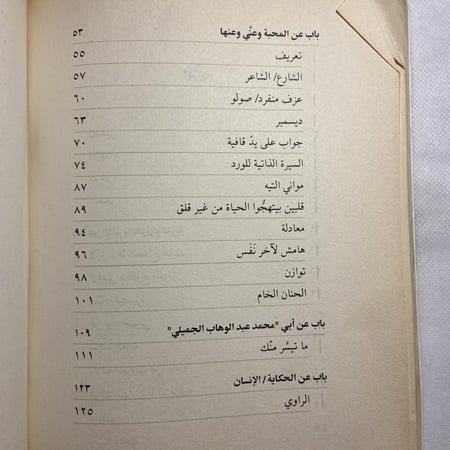 باب عن المحبة وعنّي وعنها ٥٣
تعريف ٥٥
الشارع/ الشاعر ٥٧
عزف منفرد/ صولو ٦٠
ديسمبر ٦٣
جواب على يدّ قافية ٧٠
السيرة الذاتية للورد ٧٤
مواني التيه ٨٧
قلبين بيتهجُّوا الحياة من غير قلق ٨٩
معادلة ٩٤
هامش لآخر نَفَس ٩٦
توازن ٩٨
الحنان الخام ١٠١
باب عن أبي "محمد عبد الوهاب الجميلي" ١٠٩
ما تيسَّر منْك ١١١
باب عن الحكاية/ الإنسان ١٢٣
الراوي ١٢٥